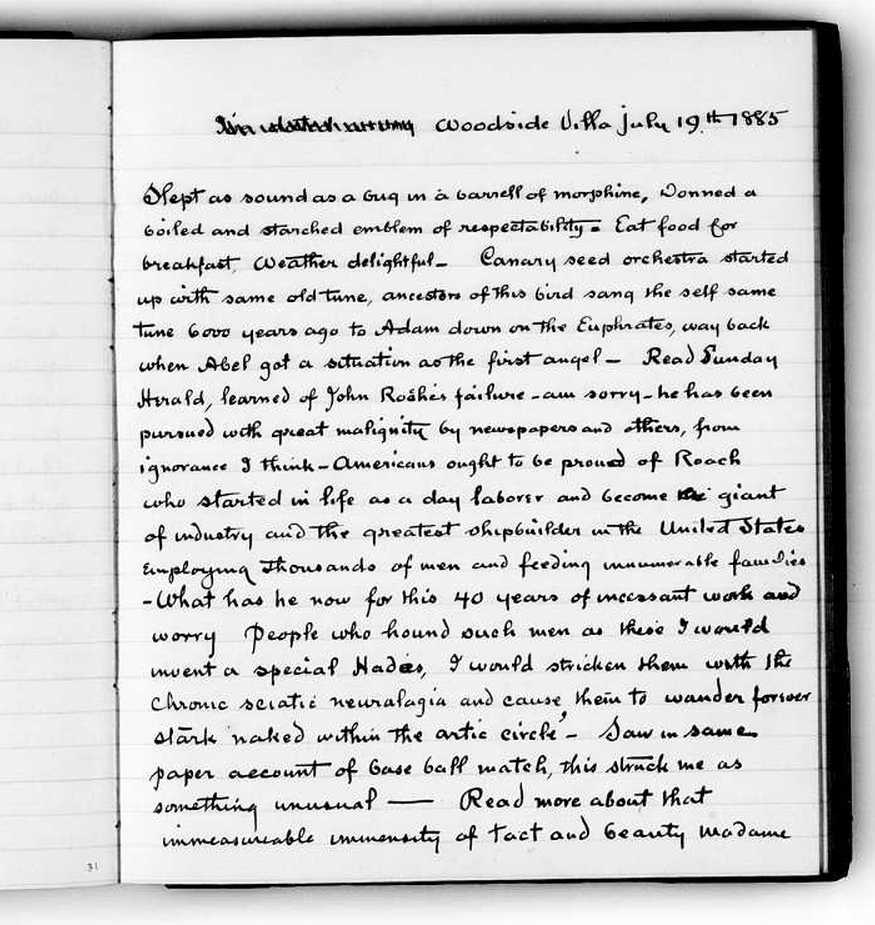 Woodside Villa July 19th 1885
Slept as sound as a bug in a barrell of morphine, Donned a
boiled and starched emblem of respectability = Eat food for
breakfast, Weather delightful – Canary seed orchestra started
up with same old tune, ancestors of this bird sang the self same
tune 6000 years ago to Adam down on the Euphrates, way back
when Abel got a situation as the first angel – Read Sunday
Herald, learned of John Roach's failure – am sorry – he has been
pursued with great malignity by newspapers and others, from
ignorance I think – Americans ought to be proued of Roach
who started in life as a day laborer and become the giant
of industry and the greatest shipbuilder in the United States
Employing thousands of men and feeding innumerable families
– What has he now for this 40 years of incessant work and
worry People who hound such men as these I would
invent a special Hades, I would stricken them with the
Chronic sciatic neuralagia and cause them to wander forever
stark naked within the artic circle, – Saw in same
paper account of base ball match, this struck me as
something unusual — Read more about that
immeasureable immensity of tact and beauty Madame
31